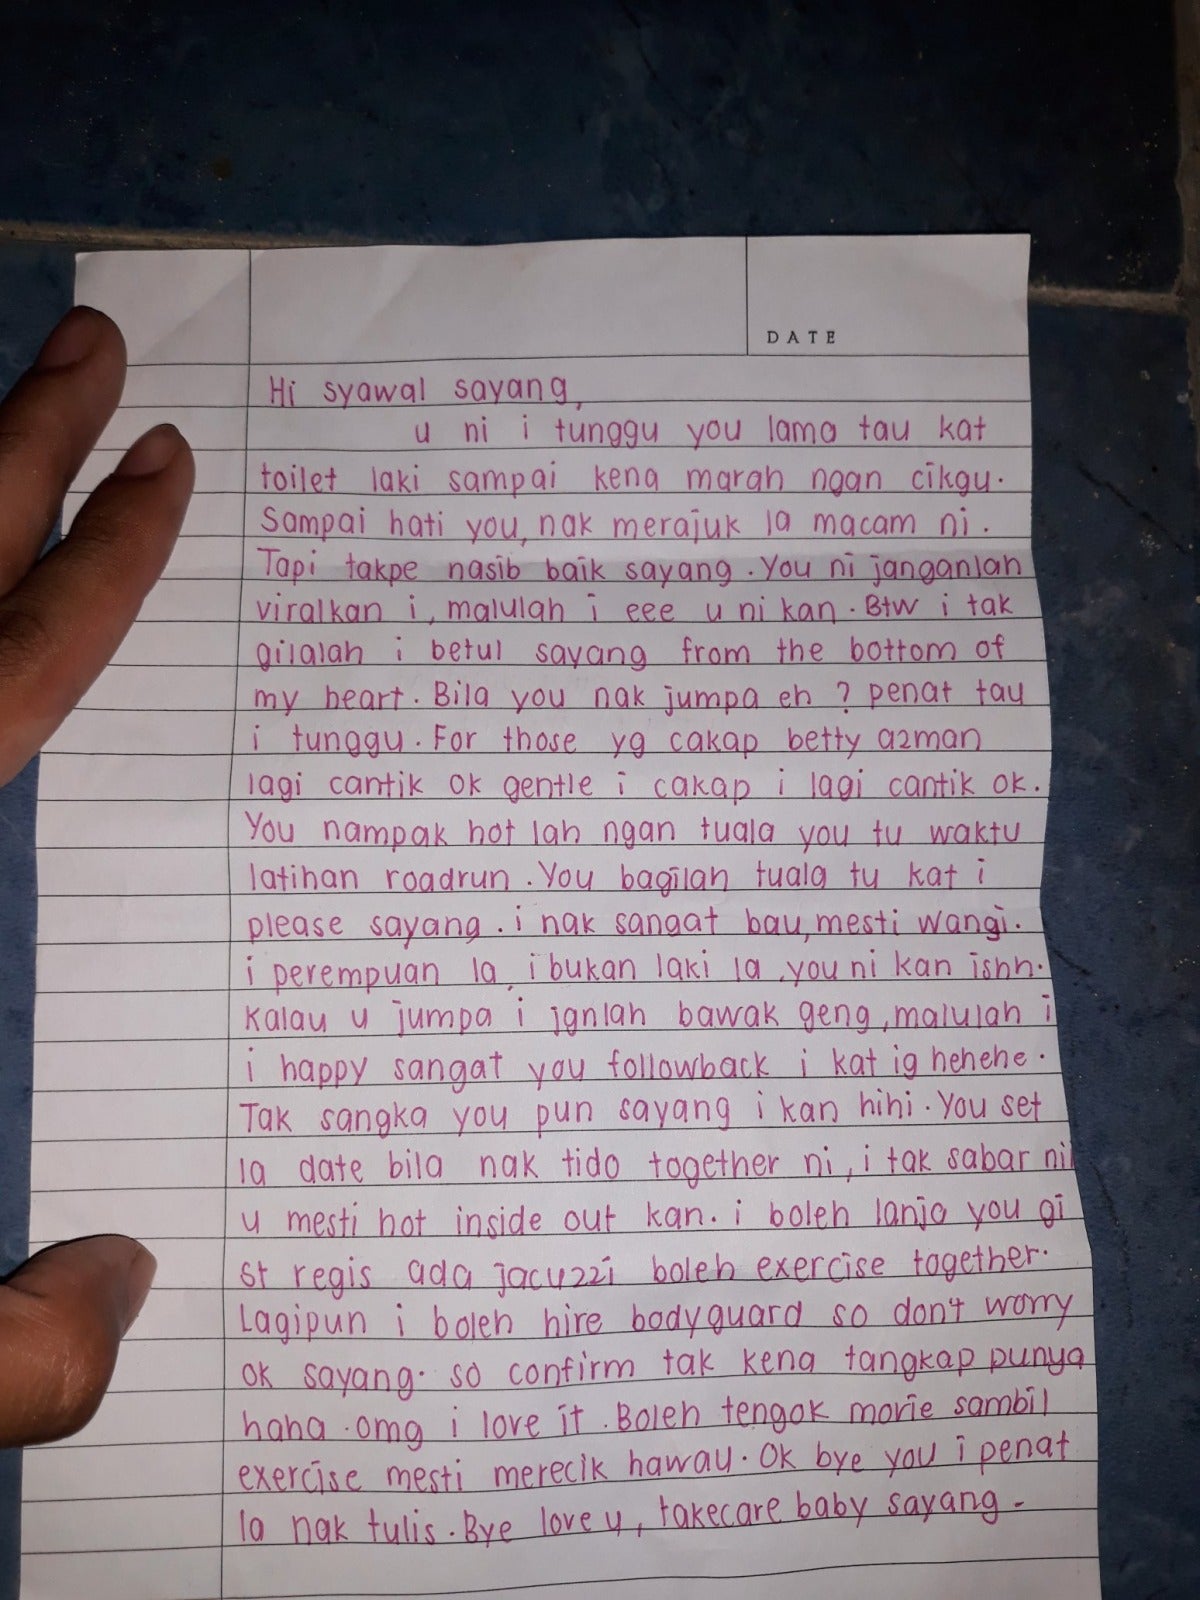 DATE
Hi syawal sayang,
u ni i tunggu you lama tau kat
toilet laki sampai kena marah ngan cikgu.
Sampai hati you, nak merajuk la macam ni.
Tapi takpe nasib baik sayang. You ni janganlah
viralkan i, malulah i eee u ni kan. Btw i tak
gilalah i betul sayang from the bottom of
my heart. Bila you nak jumpa eh ? penat tau
i tunggu. For those yg cakap betty azman
lagi cantik ok gentle i cakap i lagi cantik ok.
You nampak hot lah ngan tuala you tu waktu
latihan roadrun. You bagilah tuala tu kat i
please sayang. i nak sangat bau, mesti wangi.
i perempuan la, i bukan laki la, you ni kan ishh.
Kalau u jumpa i jgnlah bawak geng, malulah i
i happy sangat you followback i kat ig hehehe.
Tak sangka you pun sayang i kan hihi. You set
la date bila nak tido together ni, i tak sabar ni
u mesti hot inside out kan. i boleh lanja you gi
st regis ada jacuzzi boleh exercise together.
Lagipun i boleh hire bodyguard so don't worry
ok sayang. so confirm tak kena tangkap punya
haha. omg i love it. Boleh tengok movie sambil
exercise mesti merecik hawau. Ok bye you i penat
la nak tulis. Bye love u, takecare baby sayang -